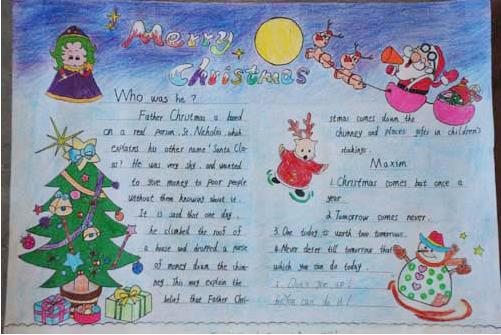 Merry
Christmas
Who was he ?
Father Christmas a based
on a real person. St. Neholis, which
explains his other name 'Santa Cla-
as'? He was very shy, and wanted
to give money to poor people
without them knowing about it.
It is said that one day,
he climbed the roof of
a house and dropped a purse
of money down the chim-
ney. This may explain the
belief that Father Chri-
stmas comes down the
chimney and places gifts in children's
stockings.
Maxim
1. Christmas comes but once a
year.
2. Tomorrow comes never.
3. One today is worth two tomorrows.
4. Never deter till tomorrow that
which you can do today.
5. Don't give up !
You can do it !